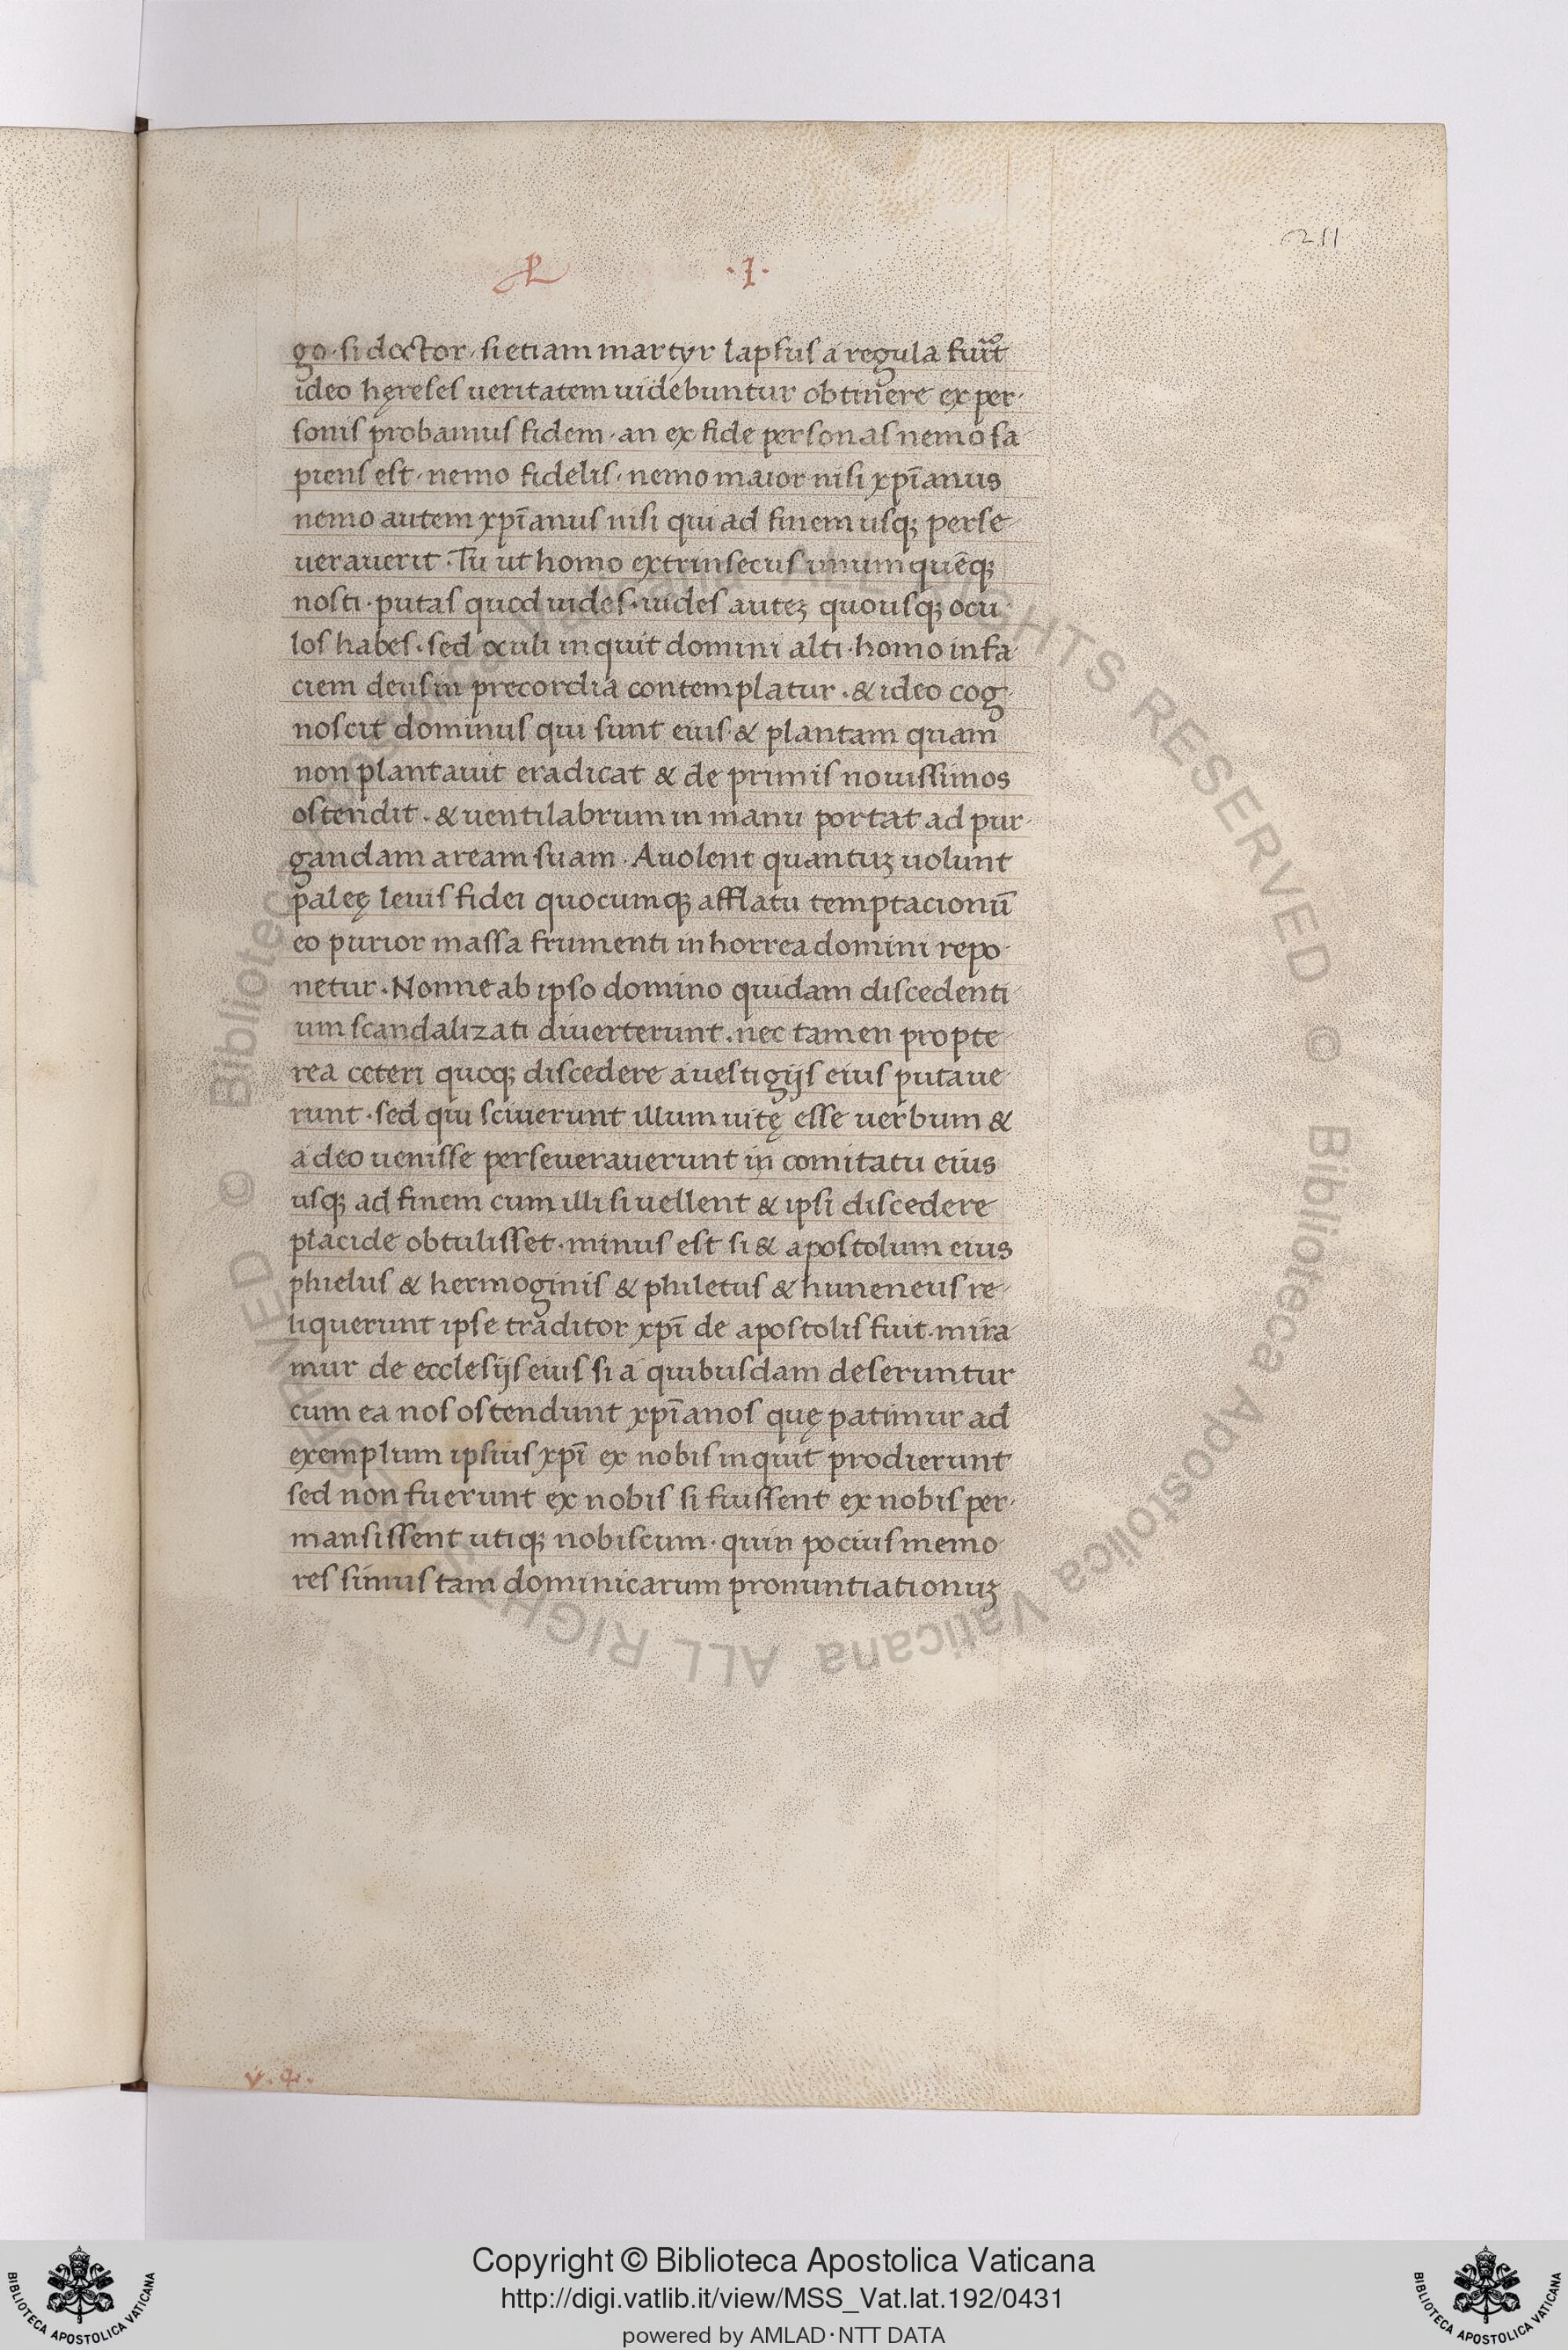 211
L · I ·
go · si doctor · si etiam martyr lapsus a regula fuĩt
ideo hęreses ueritatem uidebuntur obtinere ex per-
sonis probamus fidem · an ex fide personas nemo sa
piens est · nemo fidelis · nemo maior nisi xp̄ianus
nemo autem xp̄ianus nisi qui ad finem usqꝫ perse-
uerauerit · Tu ut homo extrinsecus unumquēqꝫ
nosti · putas quod uides · uides auteꝫ quousqꝫ ocu-
los habes · sed oculi inquit domini alti · homo in fa-
ciem deus in precordia contemplatur · & ideo cog-
noscit dominus qui sunt eius · & plantam quam
non plantauit eradicat & de primis nouissimos
ostendit · & uentilabrum in manu portat ad pur-
gandam aream suam · Auolent quantuꝫ uolunt
paleę leuis fidei quocumqꝫ afflatu temptacionū
eo purior massa frumenti in horrea domini repo-
netur · Nonne ab ipso domino quidam discedenti-
um scandalizati diuerterunt · nec tamen propte-
rea ceteri quoqꝫ discedere a uestigijs eius putaue-
runt · sed qui sciuerunt illum uitę esse uerbum &
a deo uenisse perseuerauerunt in comitatu eius
usqꝫ ad finem cum illi si uellent & ipsi discedere
placide obtulisset · minus est si & apostolum eius
phielus & hermoginis & philetus & huneneus re-
liquerunt ipse traditor xp̄i de apostolis fuit · mira-
mur de ecclesijs eius si a quibusdam deseruntur
cum ea nos ostendunt xp̄ianos quę patimur ad
exemplum ipsius xp̄i ex nobis inquit prodierunt
sed non fuerunt ex nobis si fuissent ex nobis per-
mansissent utiqꝫ nobiscum · quin pocius memo-
res simus tam dominicarum pronuntiationuꝫ
Copyright © Biblioteca Apostolica Vaticana
http://digi.vatlib.it/view/MSS_Vat.lat.192/0431
powered by AMLAD·NTT DATA
BIBLIOTECA APOSTOLICA VATICANA
BIBLIOTECA APOSTOLICA VATICANA
© Biblioteca Apostolica Vaticana ALL RIGHTS RESERVED © Biblioteca Apostolica Vaticana ALL RIGHTS RESERVED